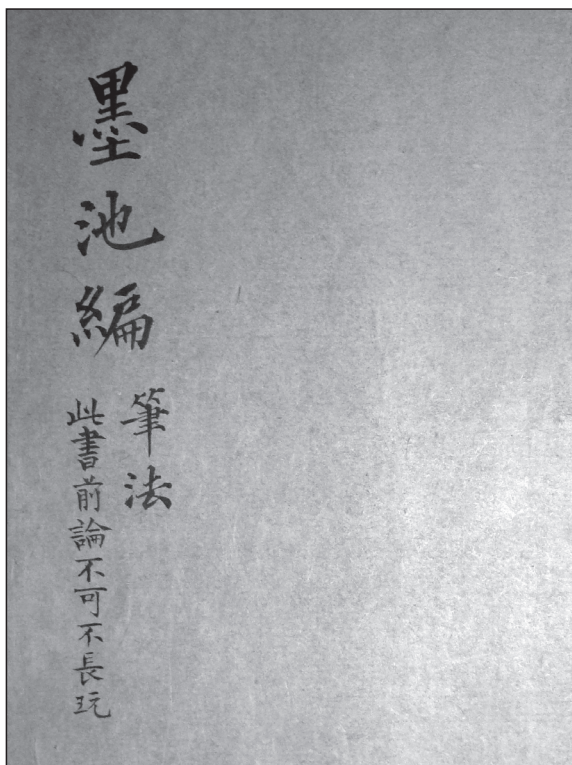 墨池編
筆法
此書前論不可不長玩